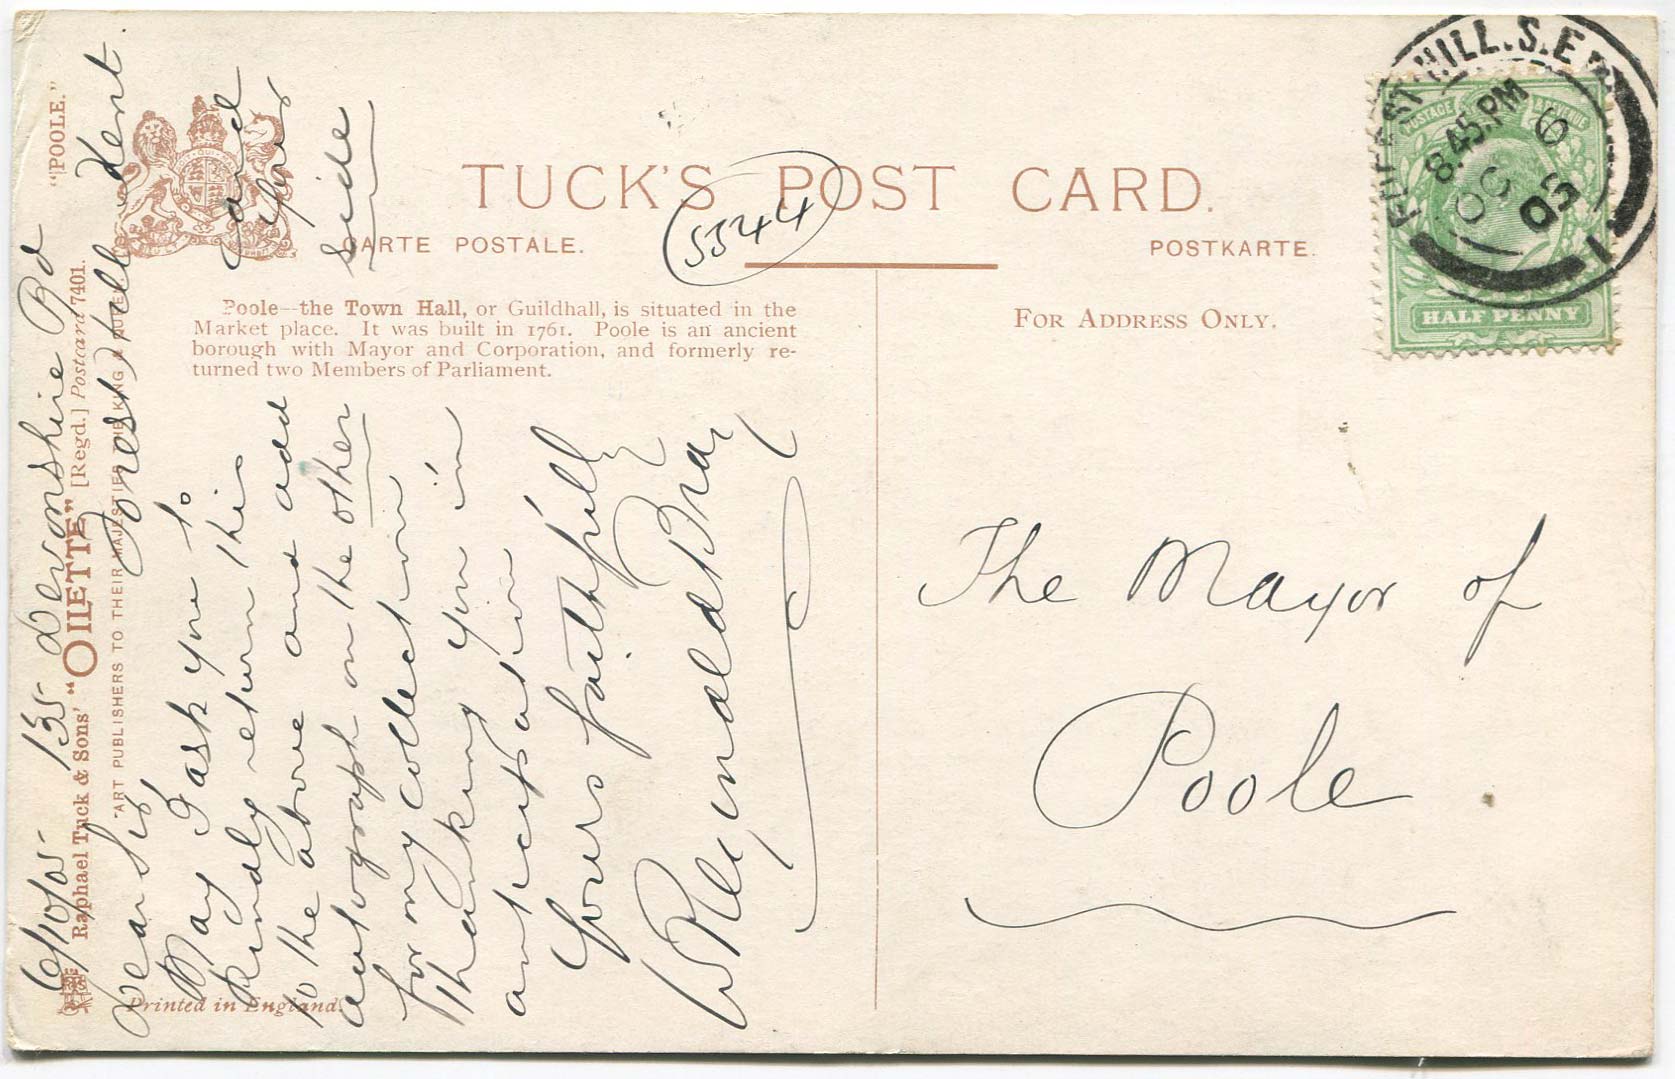 TUCK'S POST CARD.
CARTE POSTALE.
POSTKARTE.
5544
Poole—the Town Hall, or Guildhall, is situated in the
Market place. It was built in 1761. Poole is an ancient
borough with Mayor and Corporation, and formerly re-
turned two Members of Parliament.
FOR ADDRESS ONLY.
FOREST HILL. S.E.
8.45.PM
OC 6
05
1
POSTAGE & REVENUE
HALF PENNY
The Mayor of
Poole
"POOLE."
Raphael Tuck & Sons' "OILETTE" [Regd.] Postcard 7401.
"ART PUBLISHERS TO THEIR MAJESTIES THE KING & QUEEN.
Printed in England.
6/10/05 135 Devonshire Rd
Forest Hill Kent.
Dear Sir
May I ask you to
kindly return this
to the above and add
autograph on the other
side
for my collection
Thanking you in
anticipation
Yours faithfully
W Reginald Bray
card
your